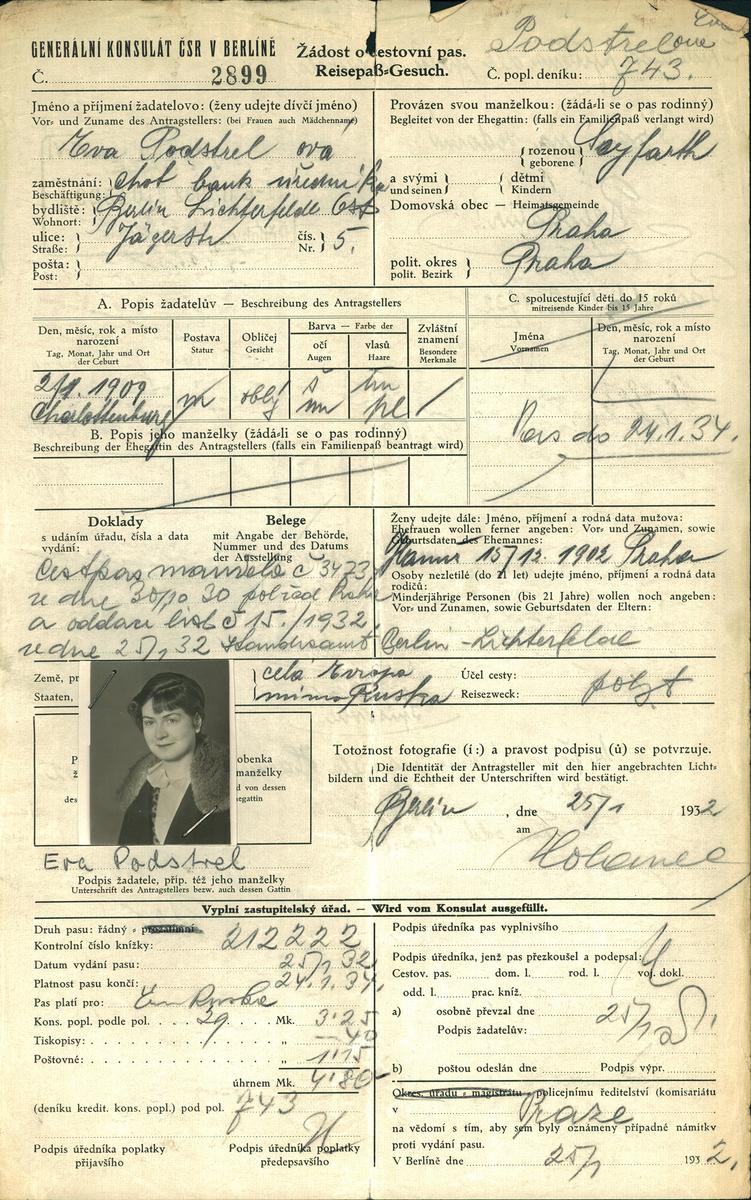 GENERÁLNÍ KONSULÁT ČSR V BERLÍNĚ
Č. 2899
Žádost o cestovní pas.
Reisepaß-Gesuch.
Podstrelová
Eva
Č. popl. deníku: 743.
Jméno a příjmení žadatelovo: (ženy udejte dívčí jméno)
Vor- und Zuname des Antragstellers: (bei Frauen auch Mädchenname)
Eva Podstrel ová
zaměstnání: choť bank. úředníka
Beschäftigung:
bydliště: Berlin Lichterfelde Ost
Wohnort:
ulice: Jägerstr čís. 5.
Straße: Nr.
pošta:
Post:
Provázen svou manželkou: (žádá-li se o pas rodinný)
Begleitet von der Ehegattin: (falls ein Familienpaß verlangt wird)
rozenou Seyfarth
geborene
a svými dětmi
und seinen Kindern
Domovská obec — Heimatsgemeinde
Praha
polit. okres Praha
polit. Bezirk
A. Popis žadatelův — Beschreibung des Antragstellers
Den, měsíc, rok a místo narození
Tag, Monat, Jahr und Ort der Geburt
Postava
Statur
Obličej
Gesicht
Barva — Farbe der
očí
Augen
vlasů
Haare
Zvláštní znamení
Besondere Merkmale
1909 m oblý
Charlottenburg
B. Popis jeho manželky (žádá-li se o pas rodinný)
Beschreibung der Ehegattin des Antragstellers (falls ein Familienpaß beantragt wird)
C. spolucestující děti do 15 roků
mitreisende Kinder bis 15 Jahre
Jména
Vornamen
Den, měsíc, rok a místo narození
Tag, Monat, Jahr und Ort der Geburt
Pas do 24.1.34.
Doklady
s udáním úřadu, čísla a data vydání:
Belege
mit Angabe der Behörde, Nummer und des Datums der Ausstellung
Cest pas manžela č 3473
ze dne 30/10 30 pol řed Praha
a oddací list č 15./1932
ze dne 25/1 32 Standesamt
Berlin-Lichterfelde
Ženy udejte dále: Jméno, příjmení a rodná data mužova:
Ehefrauen wollen ferner angeben: Vor- und Zunamen, sowie
Geburtsdaten des Ehemannes:
Hanuš 15/12. 1902 Praha
Osoby nezletilé (do 21 let) udejte jméno, příjmení a rodná data
rodičů:
Minderjährige Personen (bis 21 Jahre) wollen noch angeben:
Vor- und Zunamen, sowie Geburtsdaten der Eltern:
Země, pr
Staaten,
celá Evropa
mimo Ruska
Účel cesty: pobyt
Reisezweck:
obenka
manželky
d von dessen
egattin
Eva Podstrel
Podpis žadatele, příp. též jeho manželky
Unterschrift des Antragstellers bezw. auch dessen Gattin
Totožnost fotografie (í:) a pravost podpisu (ů) se potvrzuje.
Die Identität der Antragsteller mit den hier angebrachten Licht-
bildern und die Echtheit der Unterschriften wird bestätigt.
Berlin, dne 25/1 1932
am
Vyplní zastupitelský úřad. — Wird vom Konsulat ausgefüllt.
Druh pasu: řádný - prozatímní
Kontrolní číslo knížky: 212222
Datum vydání pasu: 25/1 32
Platnost pasu končí: 24.1.34.
Pas platí pro:
Kons. popl. podle pol. 29 Mk. 3'25
Tiskopisy: „ —40
Poštovné: „ 1'15
úhrnem Mk. 4'80
(deníku kredit. kons. popl.) pod pol. 743
Podpis úředníka poplatky přijavšího
Podpis úředníka poplatky předepsavšího
Podpis úředníka pas vyplnivšího
Podpis úředníka, jenž pas přezkoušel a podepsal:
Cestov. pas. dom. l. rod. l. voj. dokl.
odd. l. prac. kníž.
a) osobně převzal dne 25/1
Podpis žadatelův:
b) poštou odeslán dne Podpis výpr.
Okres. úřadu - magistrátu - policejnímu ředitelství (komisariátu
v Praze
na vědomí s tím, aby sem byly oznámeny případné námitky
proti vydání pasu.
V Berlíně dne 25/1 1932.